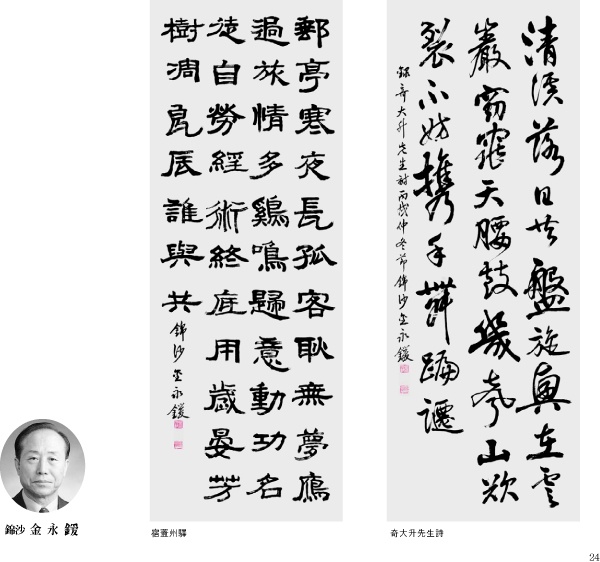 清溪落日共盤旋興在雲
巖窈窕天腰鼓幾聲山欲
裂不妨携手舞蹁躚
錄奇大升先生詩丙戌仲冬節錦沙金永鍰
郵亭寒夜長孤客耿無夢鴈
過旅情多鷄鳴歸意動功名
徒自勞經術終底用歲晏芳
樹凋良辰誰與共
錦沙金永鍰
錦沙 金永鍰
宿蓋州驛
奇大升先生詩
24